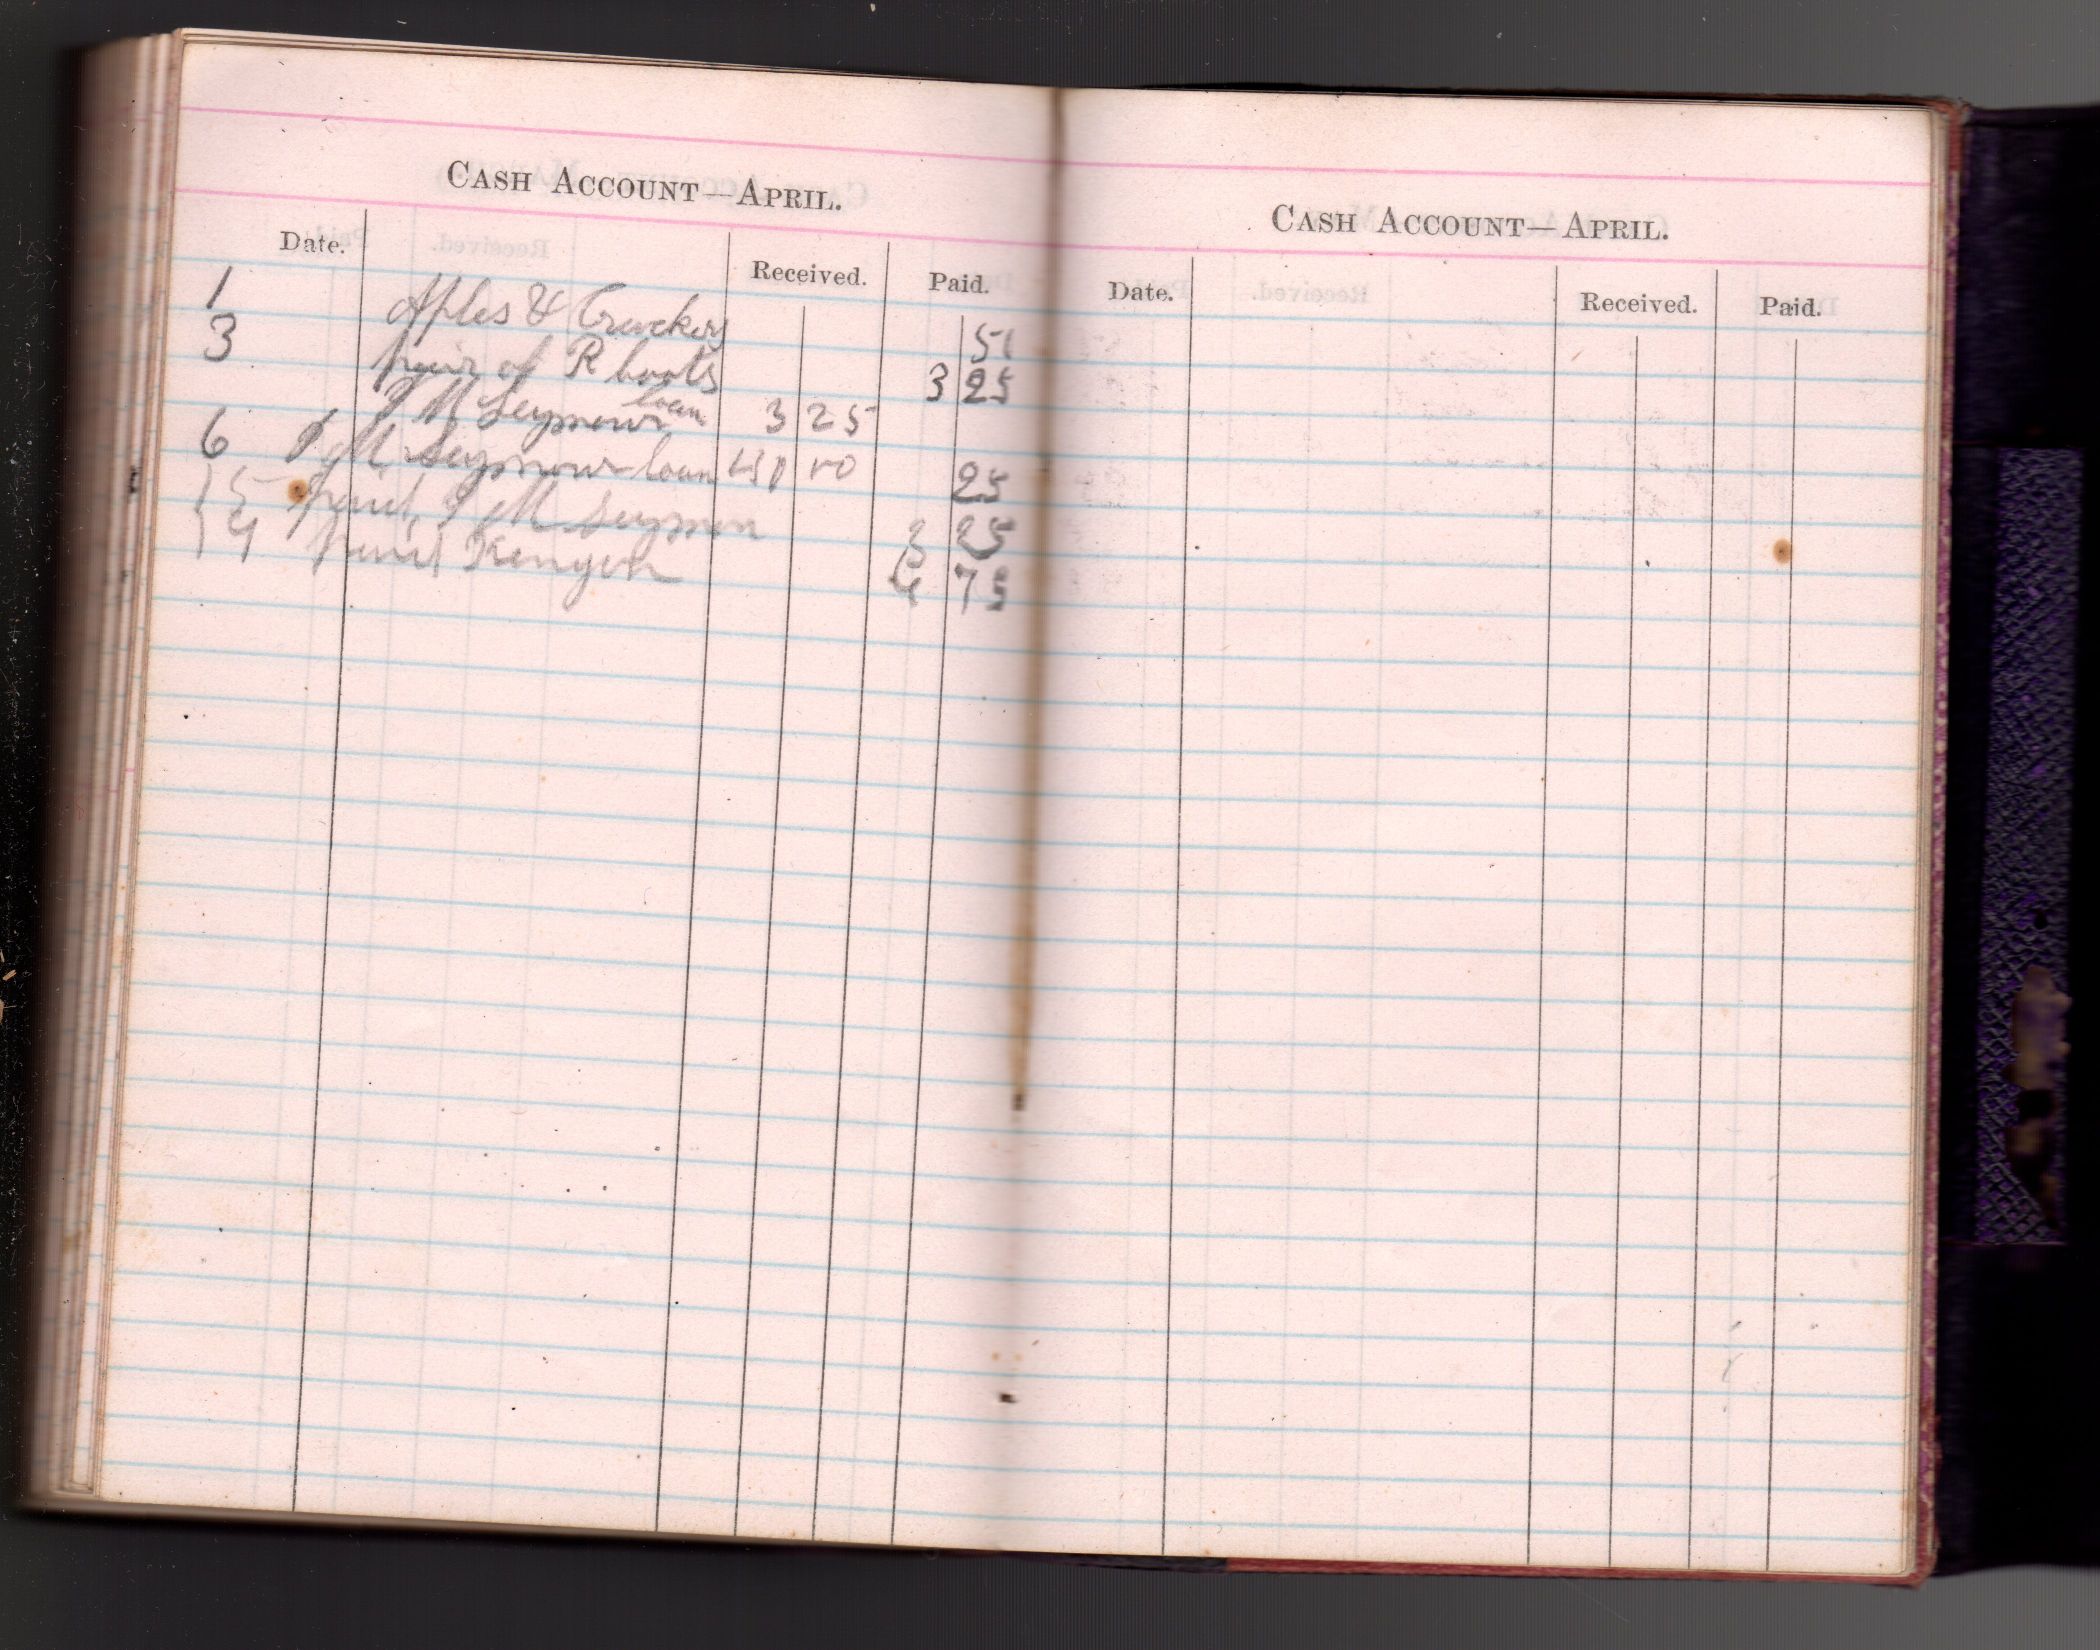 CASH ACCOUNT—APRIL.
Date. Received. Paid.
1 Aples & Crackers 51
3 pair of R boots 3 25
J M Seymour loan 3 25
6 J M Seymour loan 25
15 paid J M Seymour 3 25
paid Kenyon 75
CASH ACCOUNT—APRIL.
Date. Received. Paid.